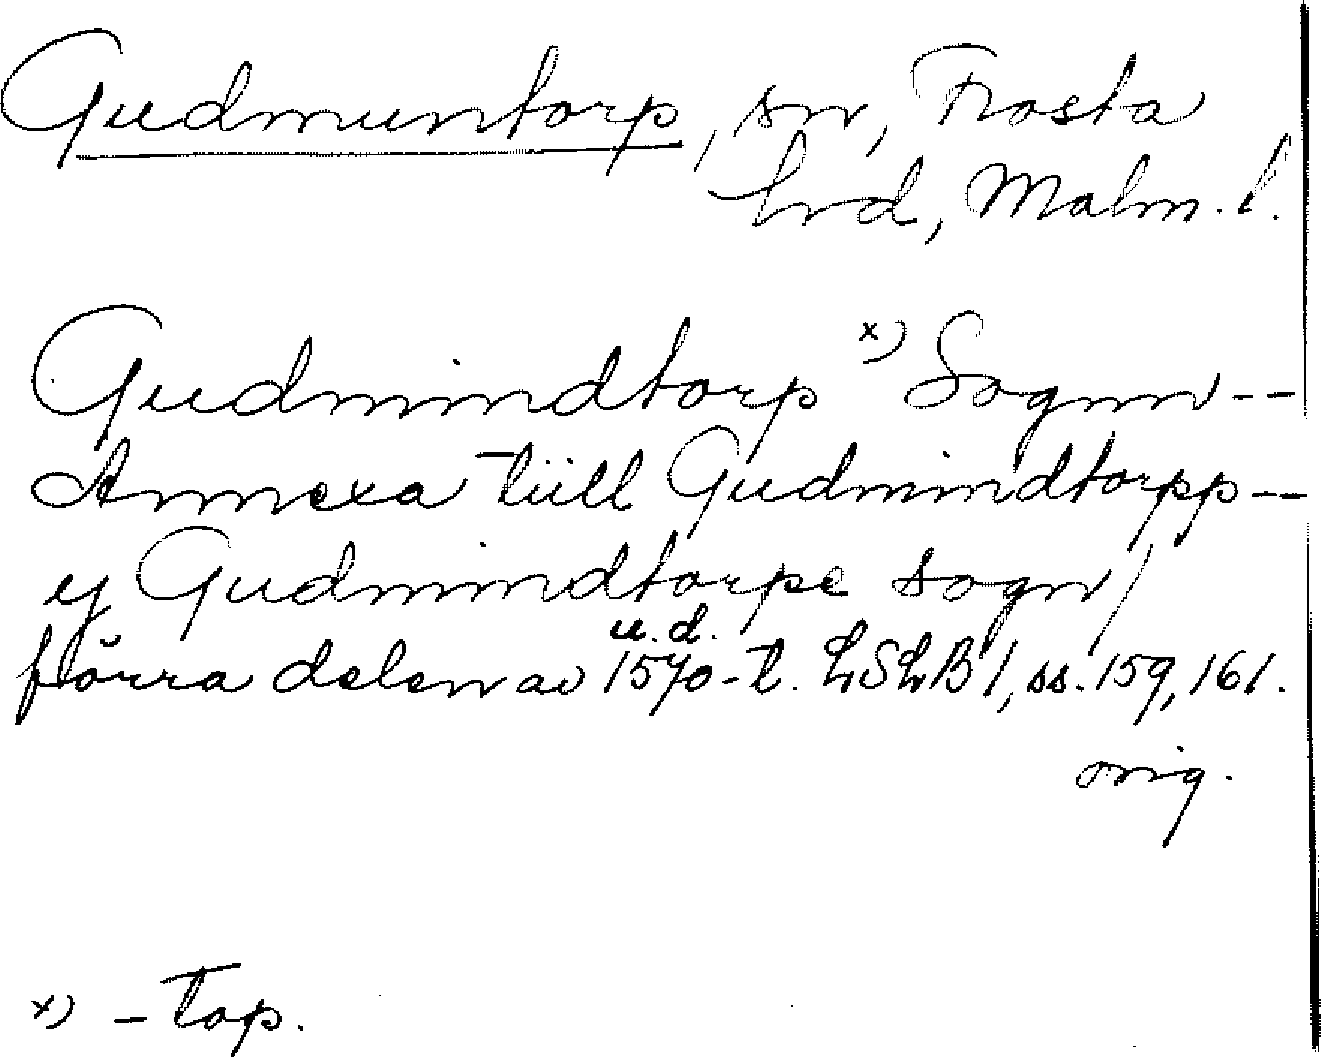 Gudmuntorp, sn, Frosta
hrd, Malm. l.
Gudmindtorp x) Sognn --
Annexa tüll Gudmindtorpp --
y Gudmindtorpe sogn /
förra delen av 1570-t. u.d. LSLB 1, ss. 159, 161.
orig.
x) - top.